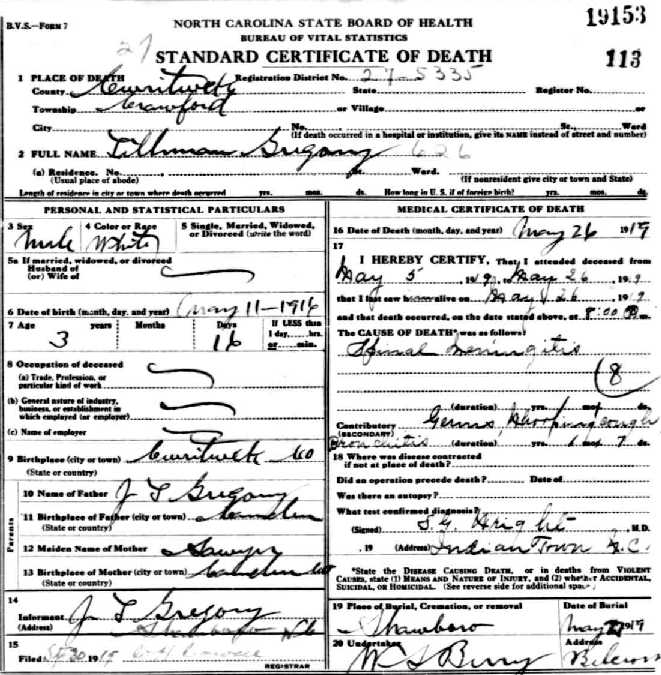 B.V.S.—FORM 7
NORTH CAROLINA STATE BOARD OF HEALTH
19153
BUREAU OF VITAL STATISTICS
27
STANDARD CERTIFICATE OF DEATH
113
1 PLACE OF DEATH Registration District No. 27-5335
County Currituck State Register No.
Township Crawford or Village or
City No. St., Ward
(If death occurred in a hospital or institution, give its NAME instead of street and number)
2 FULL NAME Tillman Gregory 626
(a) Residence. No. St. Ward.
(Usual place of abode) (If nonresident give city or town and State)
Length of residence in city or town where death occurred yrs. mos. ds. How long in U. S. if of foreign birth? yrs. mos. ds.
PERSONAL AND STATISTICAL PARTICULARS
3 Sex 4 Color or Race 5 Single, Married, Widowed, or Divorced (write the word)
Male White
5a If married, widowed, or divorced
Husband of
(or) Wife of
6 Date of birth (month, day, and year) May 11-1916
7 Age years Months Days If LESS than 1 day, hrs. or min.
3 16
8 Occupation of deceased
(a) Trade, Profession, or particular kind of work
(b) General nature of industry, business, or establishment in which employed (or employer)
(c) Name of employer
9 Birthplace (city or town) Currituck Co
(State or country)
Parents
10 Name of Father J T Gregory
11 Birthplace of Father (city or town) Camden
(State or country)
12 Maiden Name of Mother Sawyer
13 Birthplace of Mother (city or town) Camden Co
(State or country)
14
Informant J T Gregory
(Address) Shawboro NC
15
Filed 30 1919
REGISTRAR
MEDICAL CERTIFICATE OF DEATH
16 Date of Death (month, day, and year) May 26 1919
17
I HEREBY CERTIFY, That I attended deceased from
May 5 1919, May 26 1919
that I last saw h alive on May 26 1919
and that death occurred, on the date stated above, at 8:00 m.
The CAUSE OF DEATH* was as follows:
Spinal Meningitis
(8
(duration) yrs. mos. ds.
Contributory Germs, Whooping cough
(SECONDARY)
Bronchitis (duration) yrs. 1 mos. 7 ds.
18 Where was disease contracted
if not at place of death?
Did an operation precede death? Date of
Was there an autopsy?
What test confirmed diagnosis?
(Signed) S. G. Wright M.D.
, 19 (Address) Indian Town N.C.
*State the DISEASE CAUSING DEATH, or in deaths from VIOLENT
CAUSES, state (1) MEANS AND NATURE OF INJURY, and (2) whether ACCIDENTAL,
SUICIDAL, OR HOMICIDAL. (See reverse side for additional space)
19 Place of Burial, Cremation, or removal Date of Burial
Shawboro May 27 1919
20 Undertaker Address
W S Berry